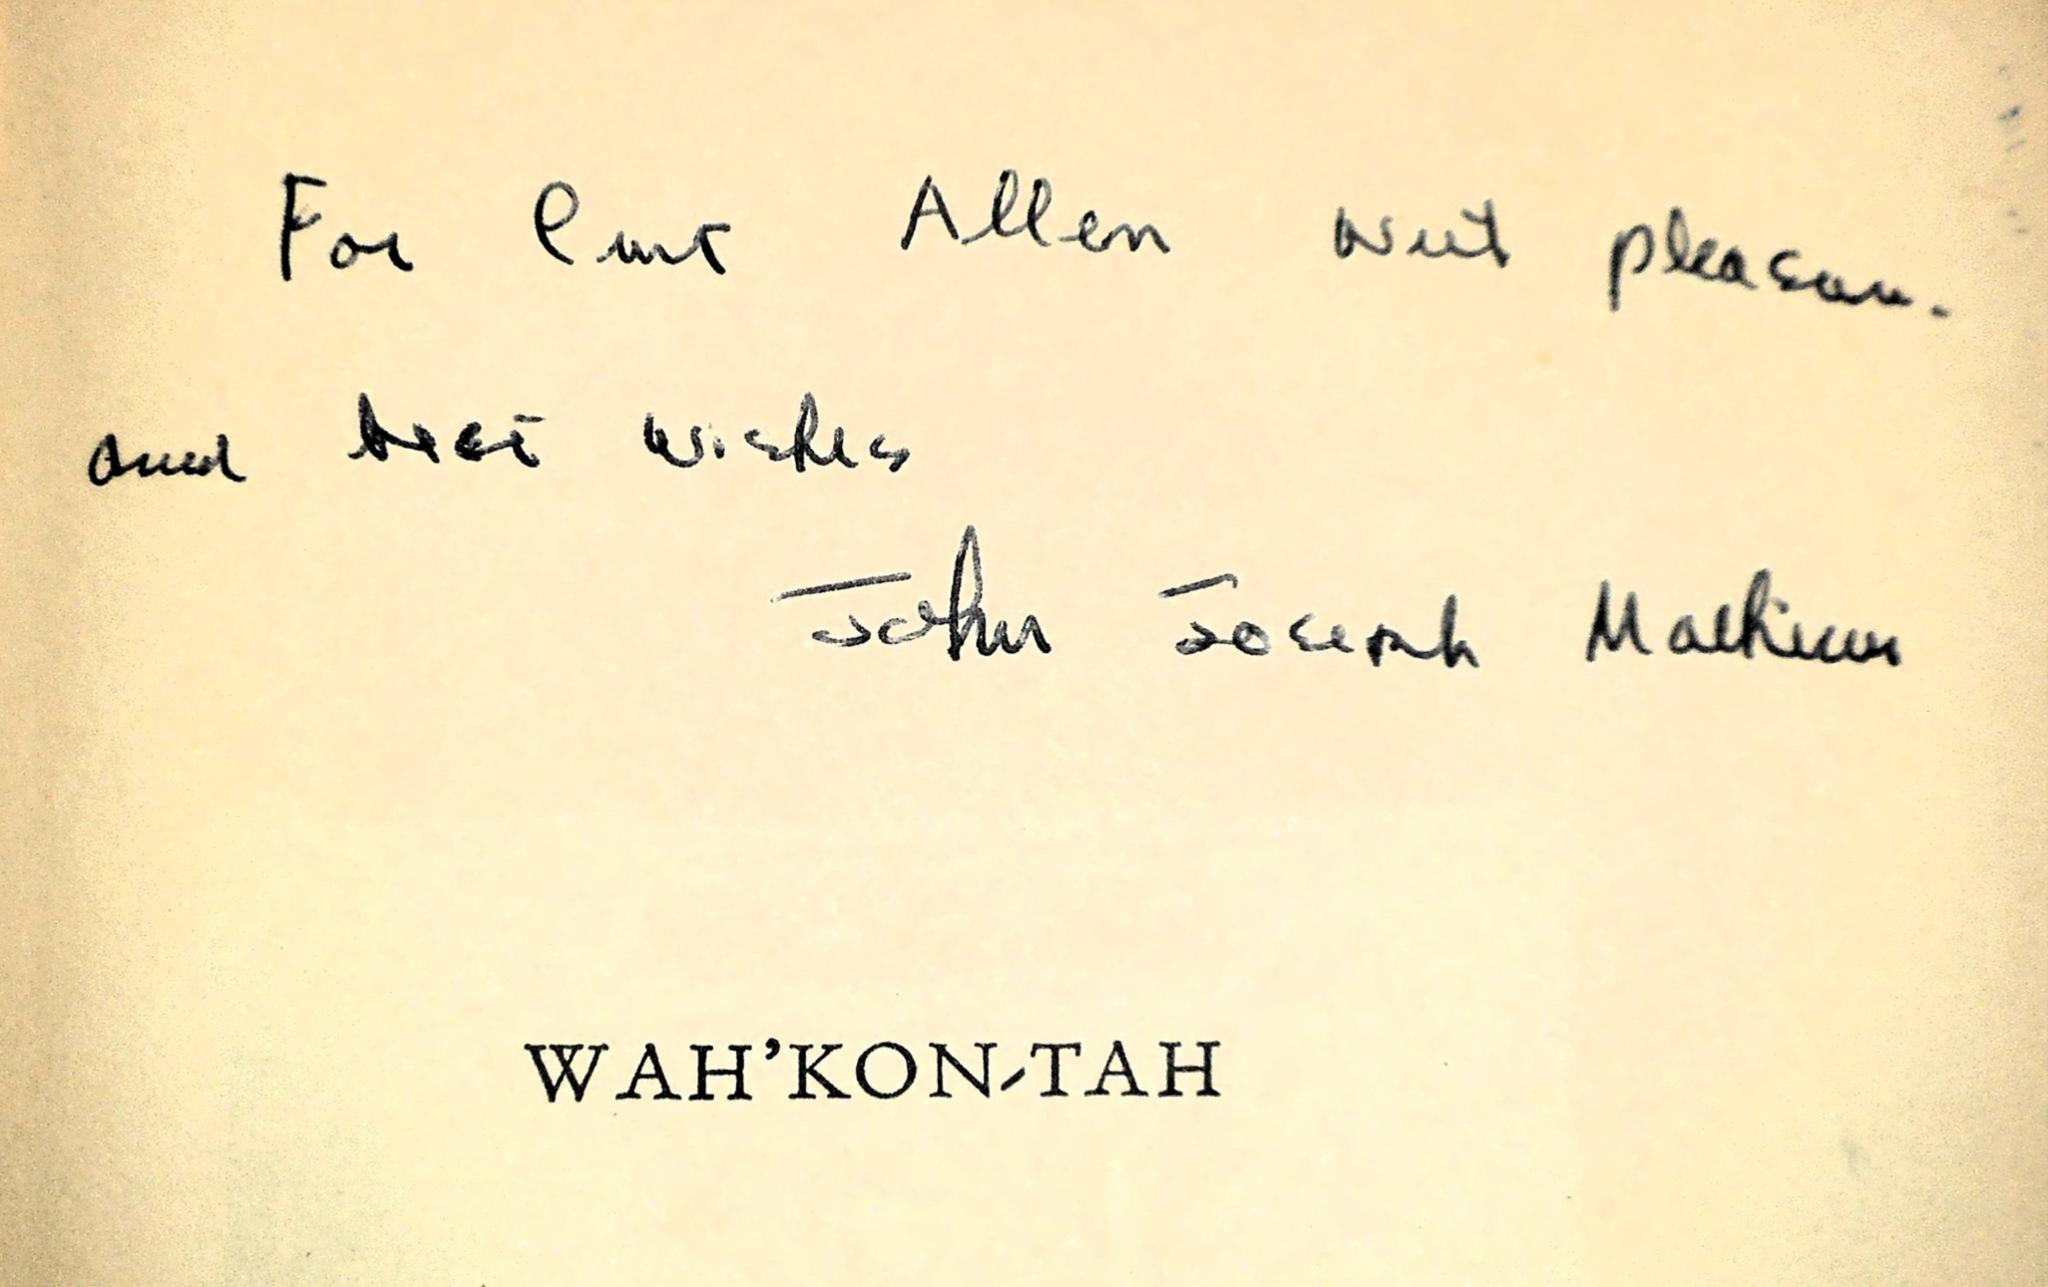 For Curt Allen with pleasure
and best wishes
John Joseph Mathews
WAH'KON-TAH